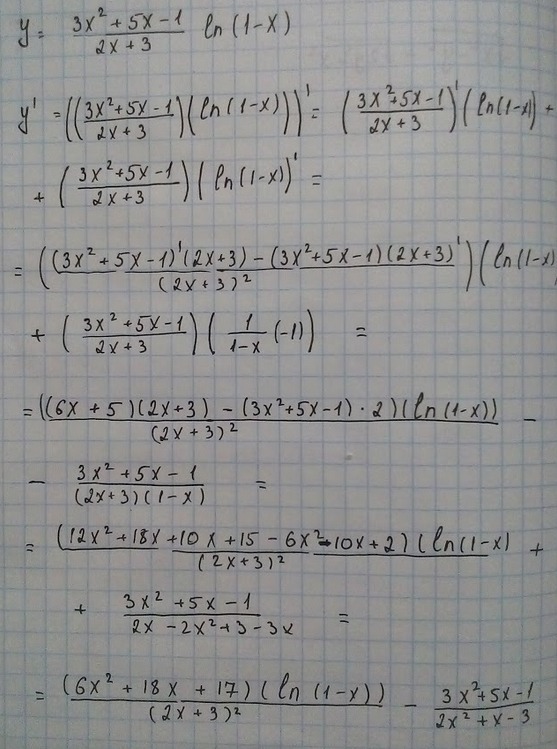 y = (3x² + 5x - 1)/(2x + 3) ln(1-x)
y' = (((3x² + 5x - 1)/(2x + 3))(ln(1-x)))' = ((3x² + 5x - 1)/(2x + 3))' (ln(1-x)) +
+ ((3x² + 5x - 1)/(2x + 3)) (ln(1-x))' =
= (((3x² + 5x - 1)'(2x + 3) - (3x² + 5x - 1)(2x + 3)')/(2x + 3)²) (ln(1-x)
+ ((3x² + 5x - 1)/(2x + 3)) (1/(1-x) (-1)) =
= ((6x + 5)(2x + 3) - (3x² + 5x - 1) · 2)(ln(1-x))/(2x + 3)² -
- (3x² + 5x - 1)/((2x + 3)(1-x)) =
= (12x² + 18x + 10x + 15 - 6x² - 10x + 2)(ln(1-x)/(2x + 3)² +
+ (3x² + 5x - 1)/(2x - 2x² + 3 - 3x) =
= (6x² + 18x + 17)(ln(1-x))/(2x + 3)² - (3x² + 5x - 1)/(2x² + x - 3)